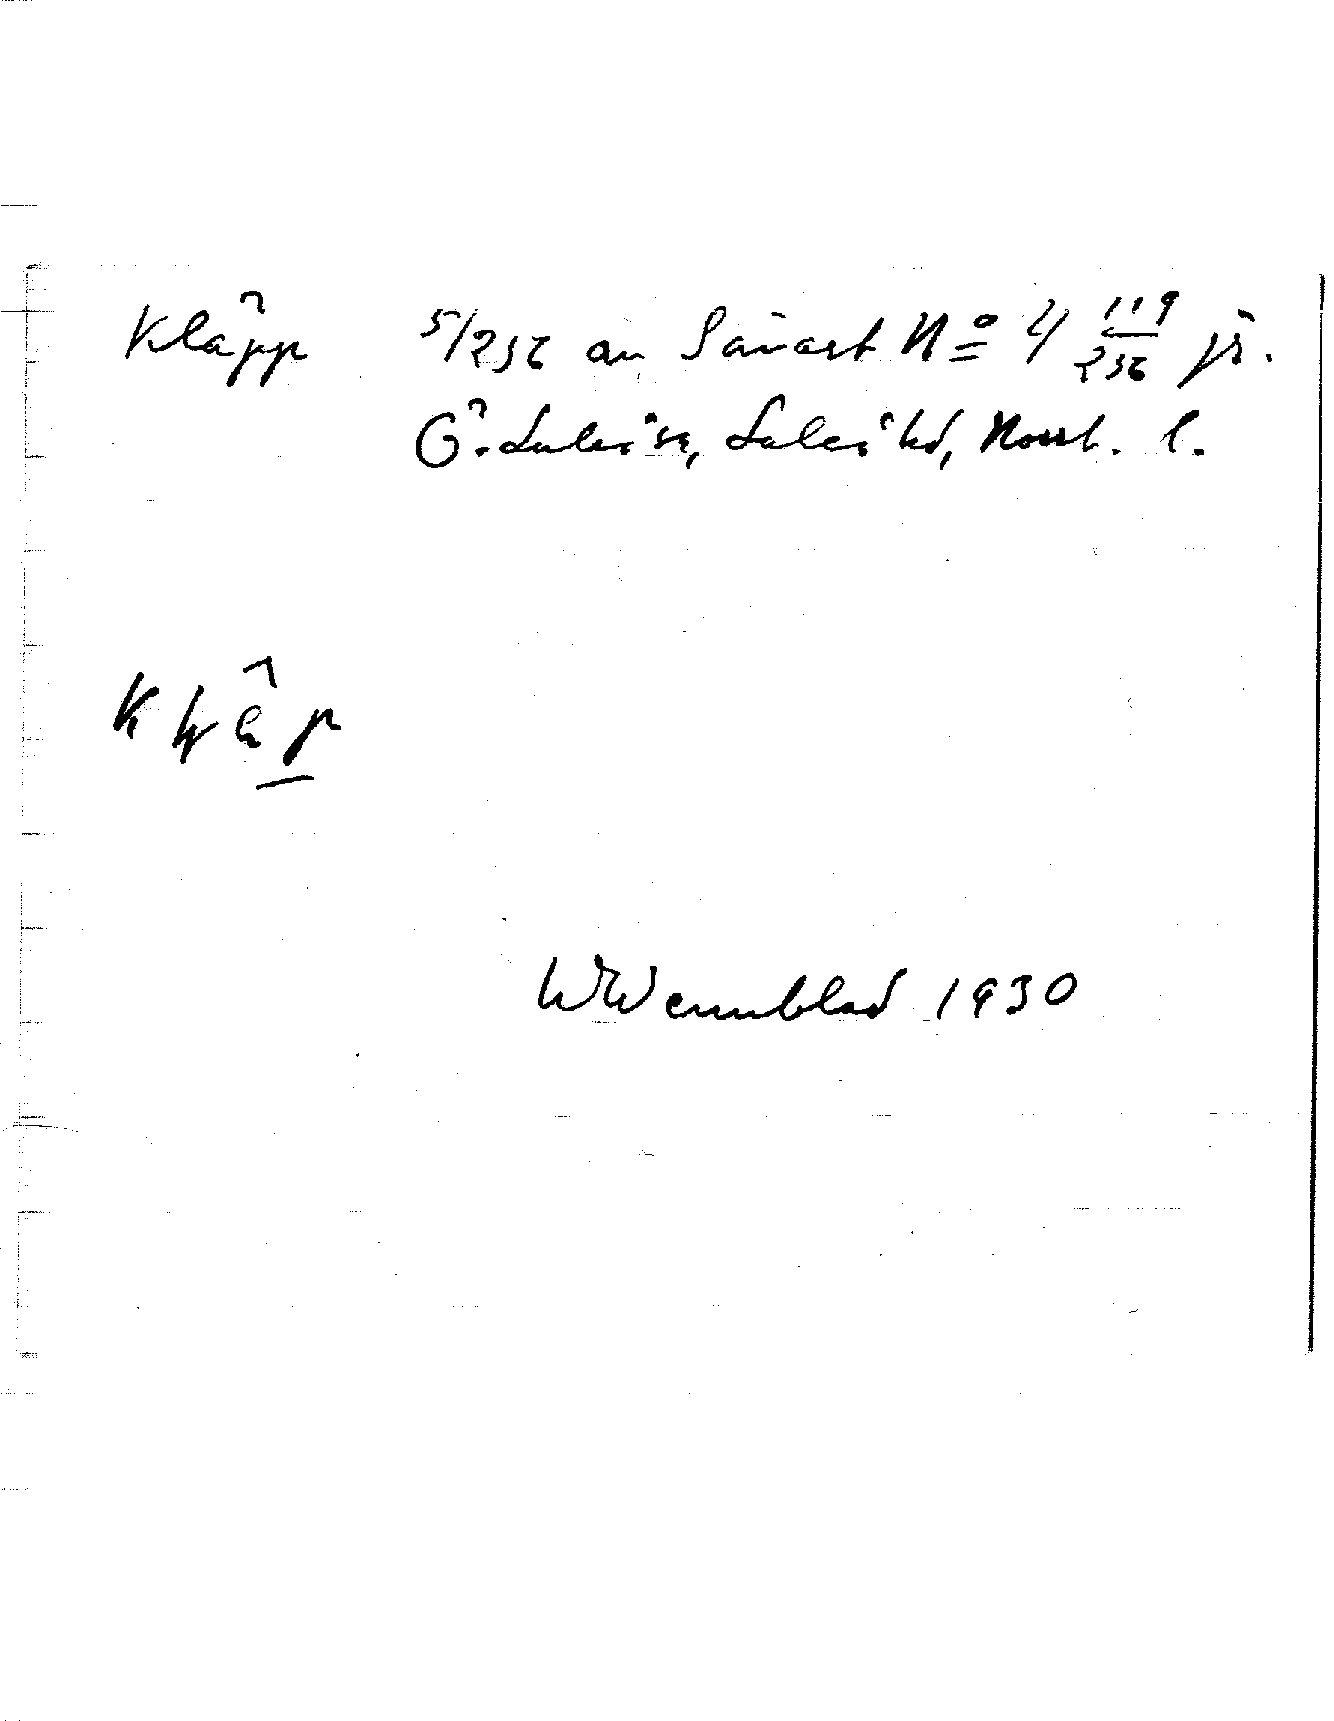 Kläpp 5/256 av Sävast No 4 119/256 jr.
Ö. Luleå sn, Luleå hd, Norrb. l.
W Wennblad 1930